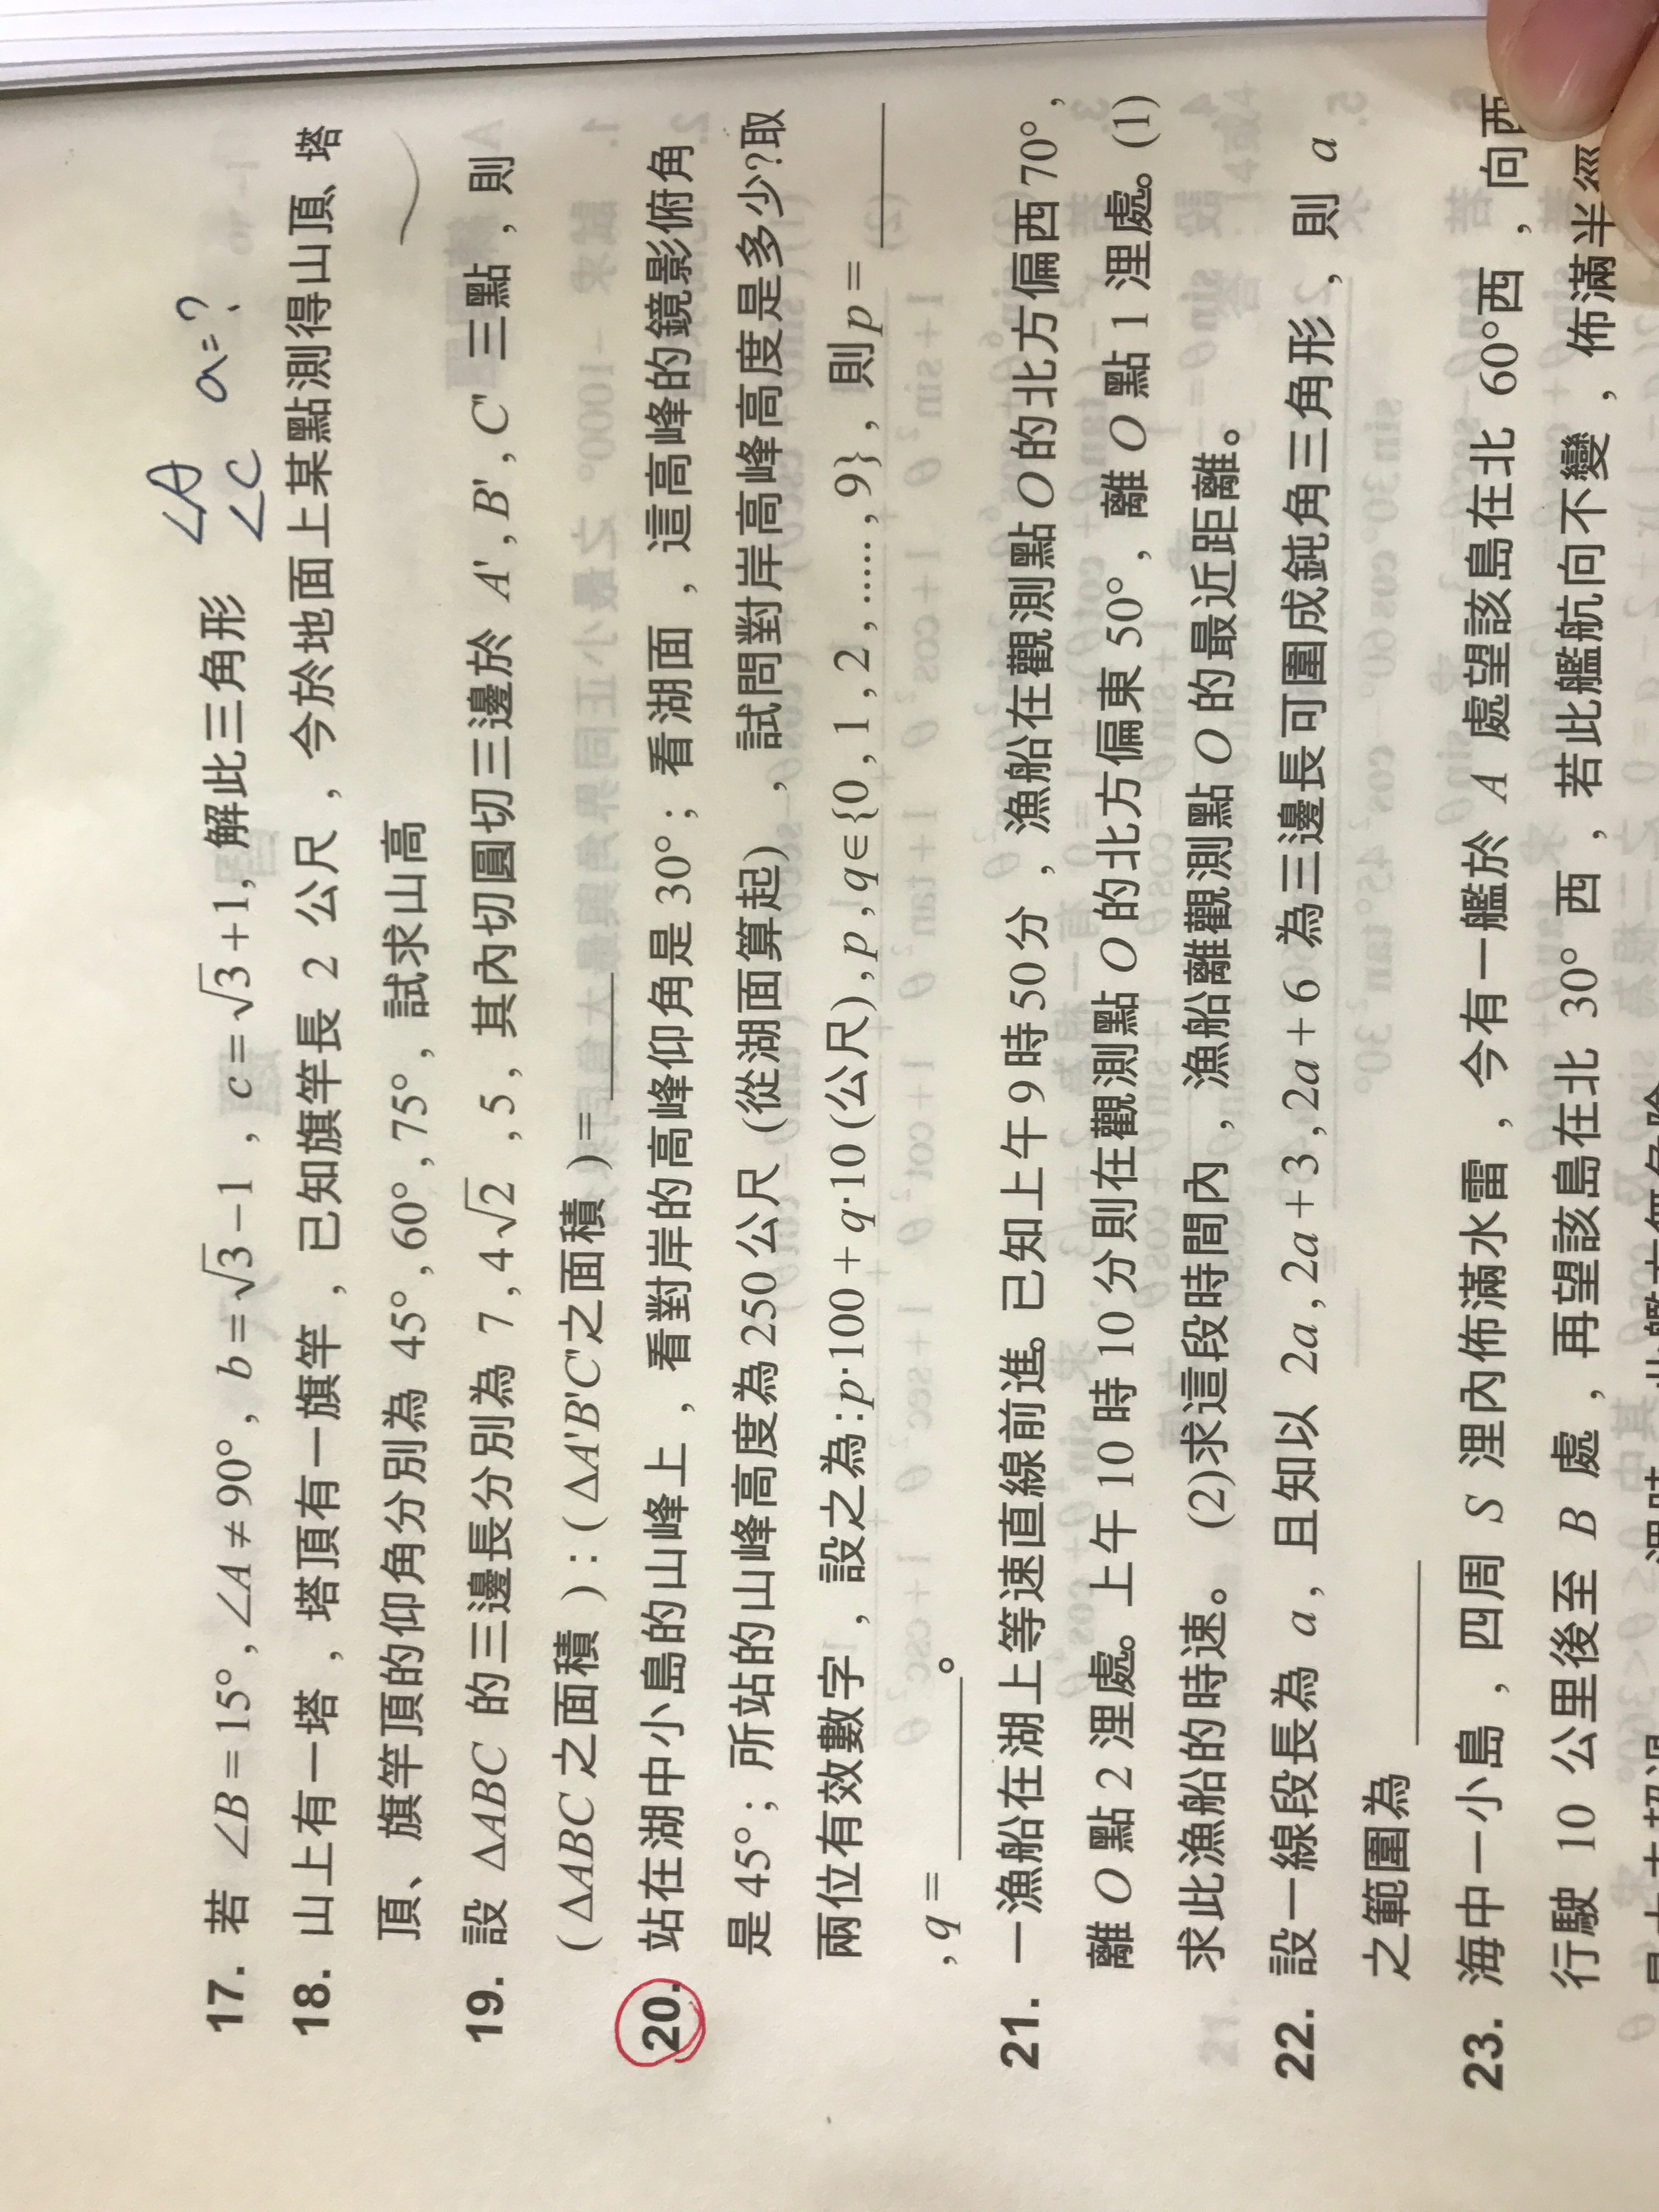 17. 若 ∠B = 15°, ∠A ≠ 90°, b = √3 − 1 , c = √3 + 1, 解此三角形 ∠A a=?
∠C
18. 山上有一塔，塔頂有一旗竿，已知旗竿長 2 公尺，今於地面上某點測得山頂、塔
頂、旗竿頂的仰角分別為 45°, 60°, 75°，試求山高
19. 設 ΔABC 的三邊長分別為 7 , 4√2 , 5，其內切圓切三邊於 A' , B' , C' 三點，則
( ΔABC 之面積 ) : ( ΔA'B'C' 之面積 ) = ______
20. 站在湖中小島的山峰上，看對岸的高峰仰角是 30°；看湖面，這高峰的鏡影俯角
是 45°；所站的山峰高度為 250 公尺 (從湖面算起)，試問對岸高峰高度是多少?取
兩位有效數字，設之為 : p·100 + q·10 (公尺) , p , q ∈ {0 , 1 , 2 , …… , 9}，則 p = ______
, q = ______。
21. 一漁船在湖上等速直線前進。已知上午 9 時 50 分，漁船在觀測點 O 的北方偏西 70°，
離 O 點 2 浬處。上午 10 時 10 分則在觀測點 O 的北方偏東 50°，離 O 點 1 浬處。(1)
求此漁船的時速。 (2)求這段時間內，漁船離觀測點 O 的最近距離。
22. 設一線段長為 a，且知以 2a , 2a + 3 , 2a + 6 為三邊長可圍成鈍角三角形，則 a
之範圍為 ______
23. 海中一小島，四周 S 浬內佈滿水雷，今有一艦於 A 處望該島在北 60° 西，向西
行駛 10 公里後至 B 處，再望該島在北 30° 西，若此艦航向不變，佈滿半徑